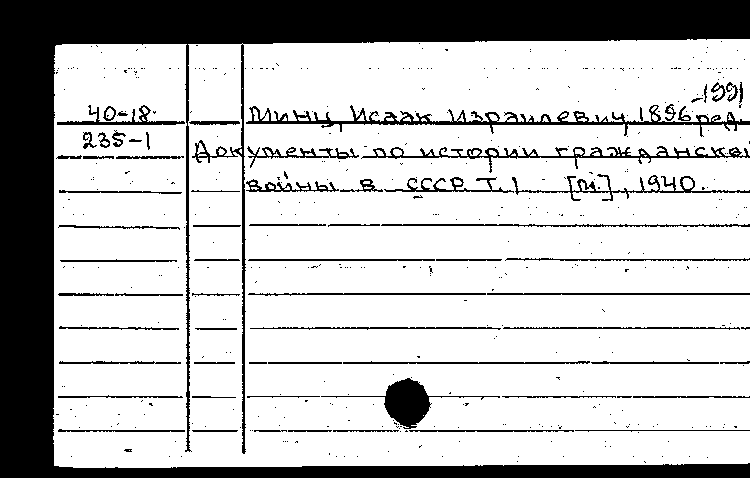 -1991
40-18 Минц, Исаак Израилевич, 1896 ред.
235-1 Документы по истории гражданской
войны в СССР. Т. 1 [М.], 1940.